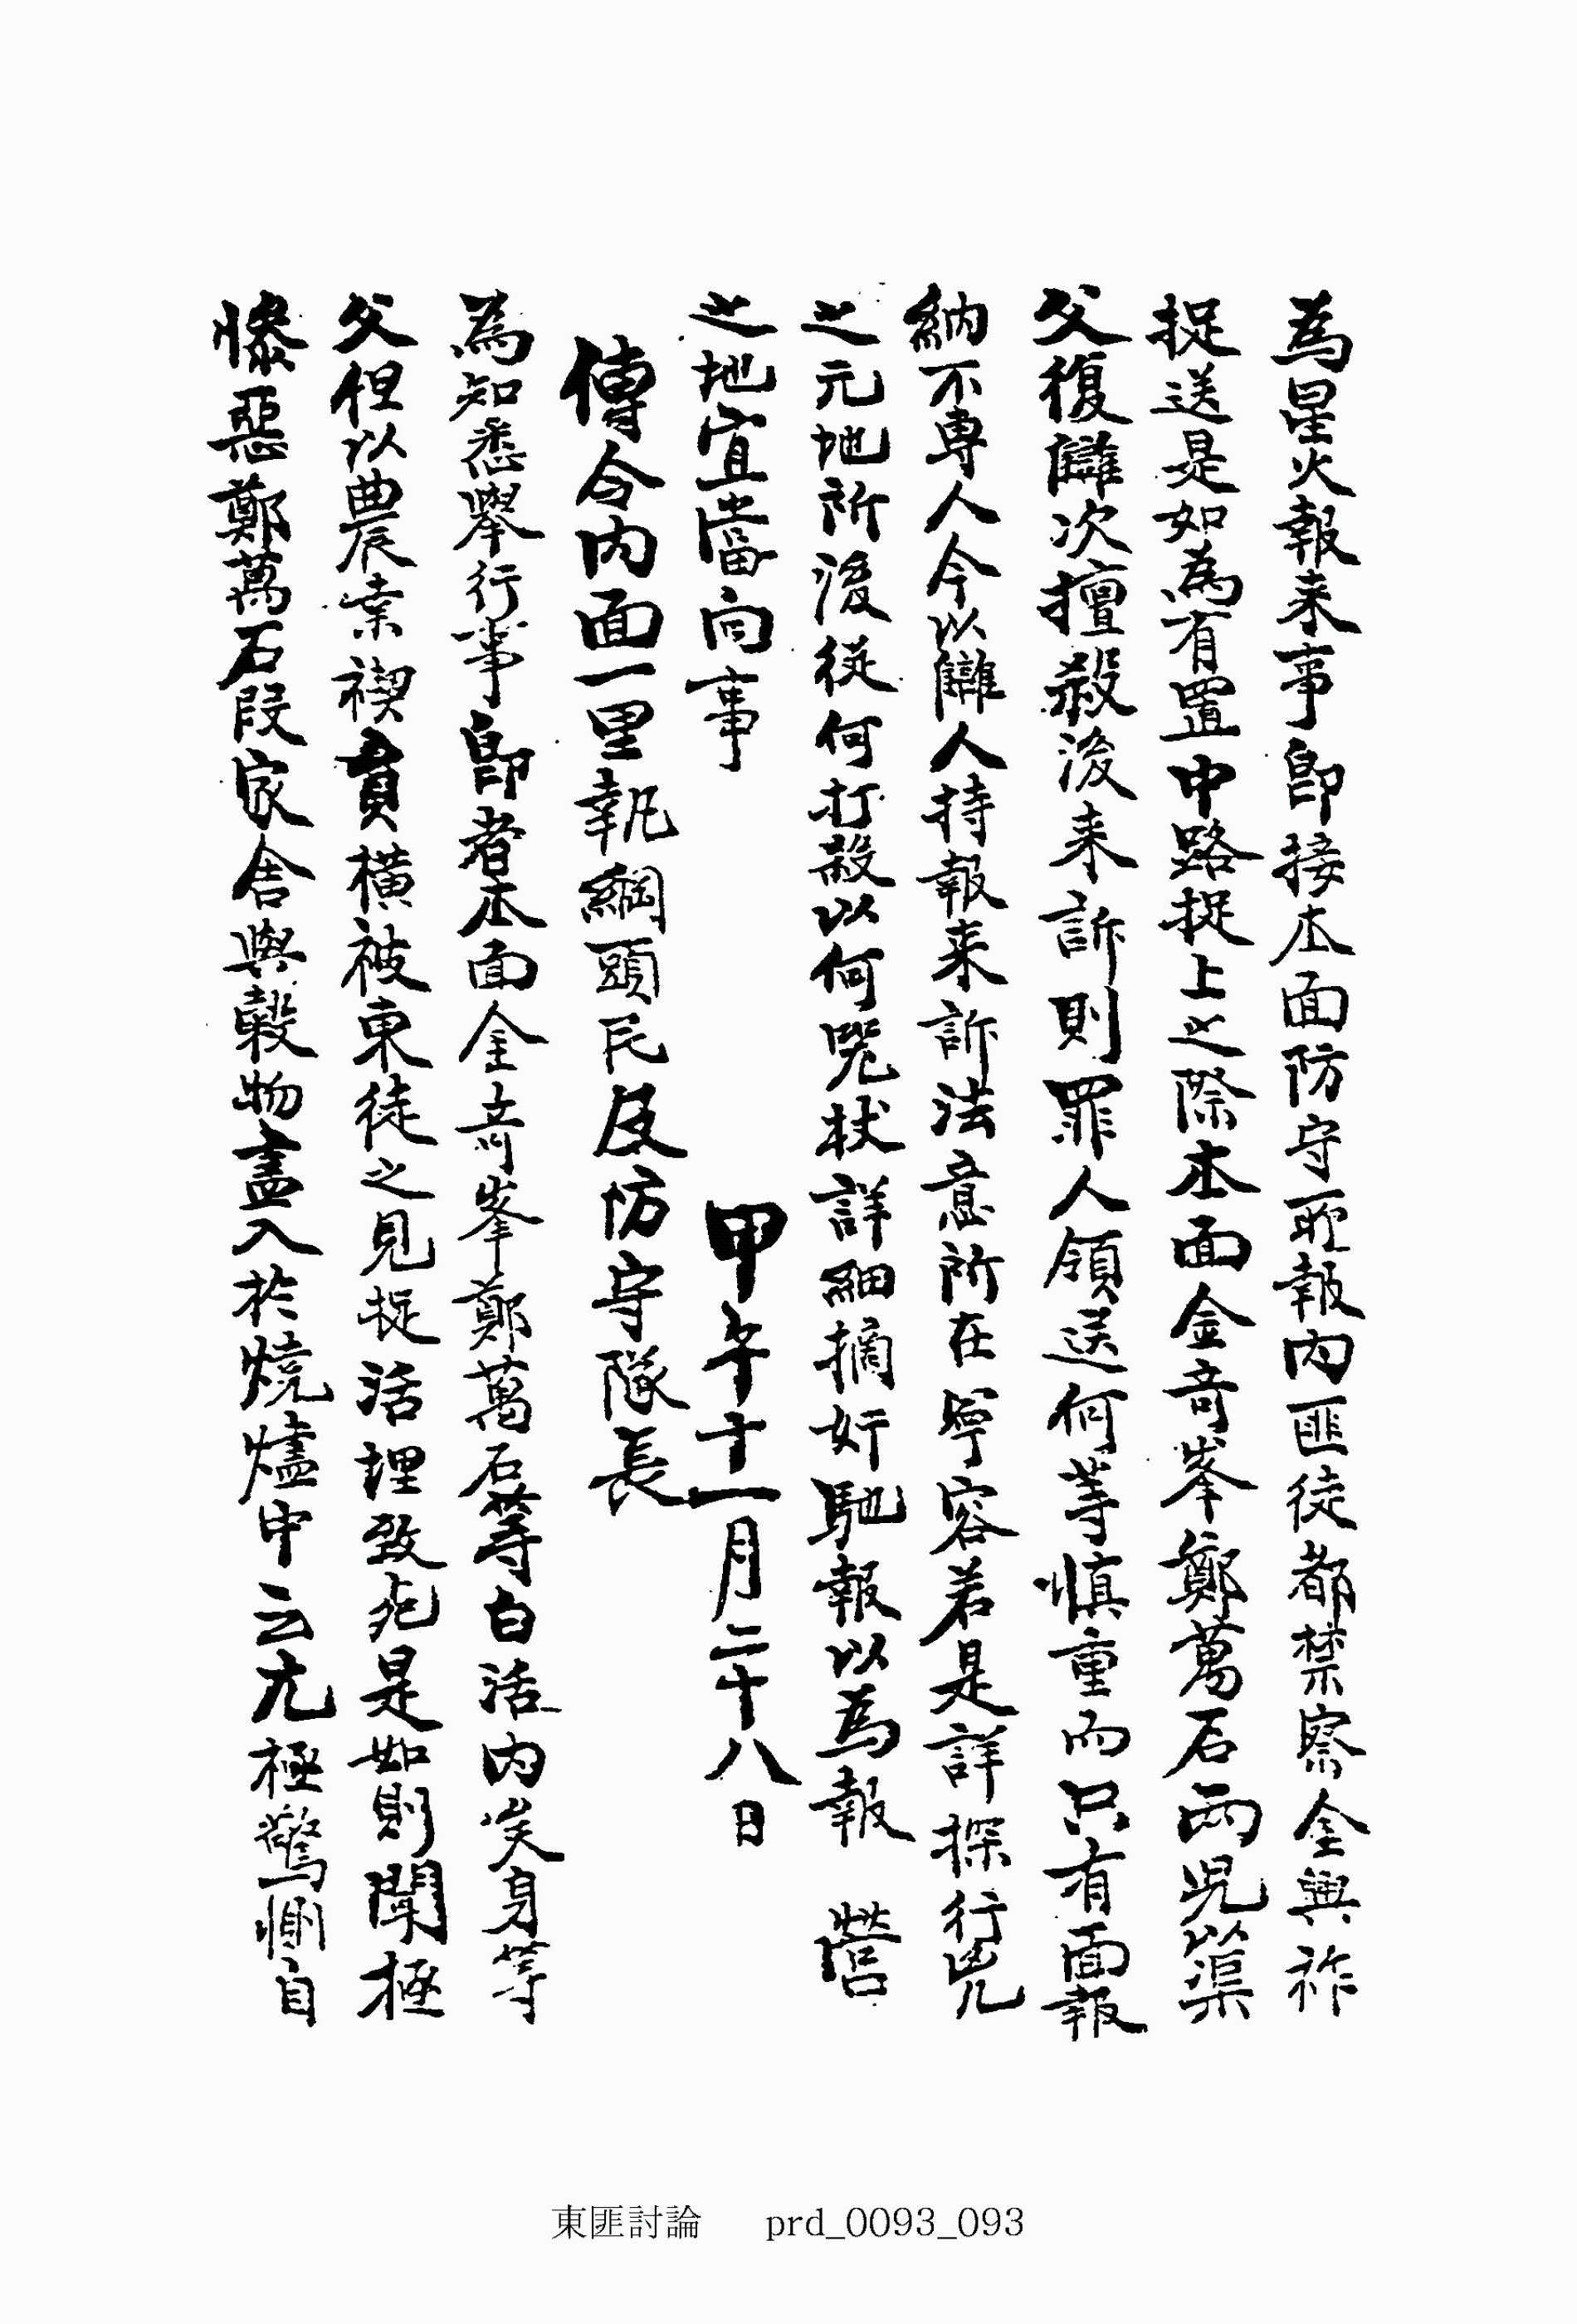 為星火報来事卽接本面防守所報内匪徒都禁察金興祚
捉送是如為有置中路捉上之際本面金奇峯鄭萬石兩児以渠
父復讎次擅殺後来訴則罪人領送何等愼重而只有面報
納不專人今以讎人持報来訴法意所在寧容若是詳探行兇
之元地所後從何打殺以何兇杖詳細摘奸馳報以為報 營
之地宜當向事
甲午十一月二十八日
傳令内面一里執綱頭民及防守隊長
為知悉擧行事卽者本面金奇峯鄭萬石等白活内矣身等
父但以農業禊貫横被東徒之見捉活埋致死是如則聞極
慘惡鄭萬石段家舍與穀物盡入於燒燼中云尤極驚惻自
東匪討論 prd_0093_093